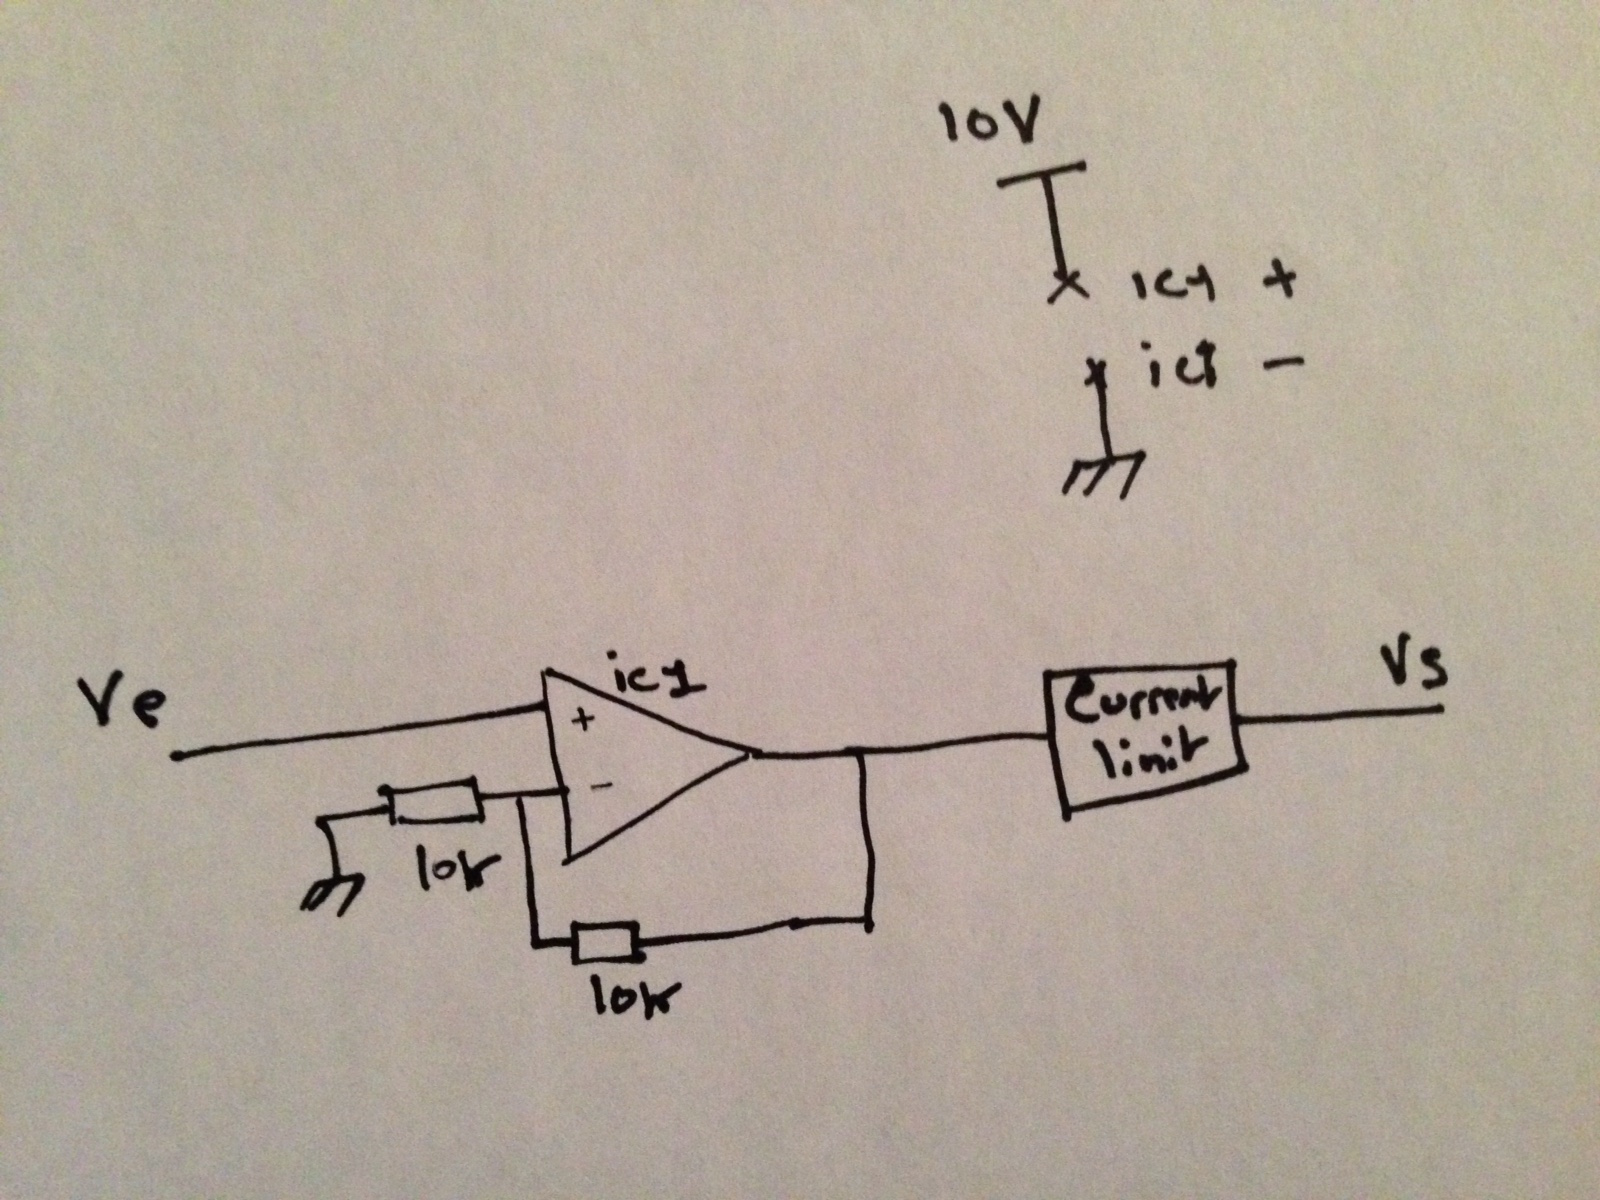 10V
ic1 +
ic1 -
Ve
ic1
+
-
10k
10k
Current
limit
Vs